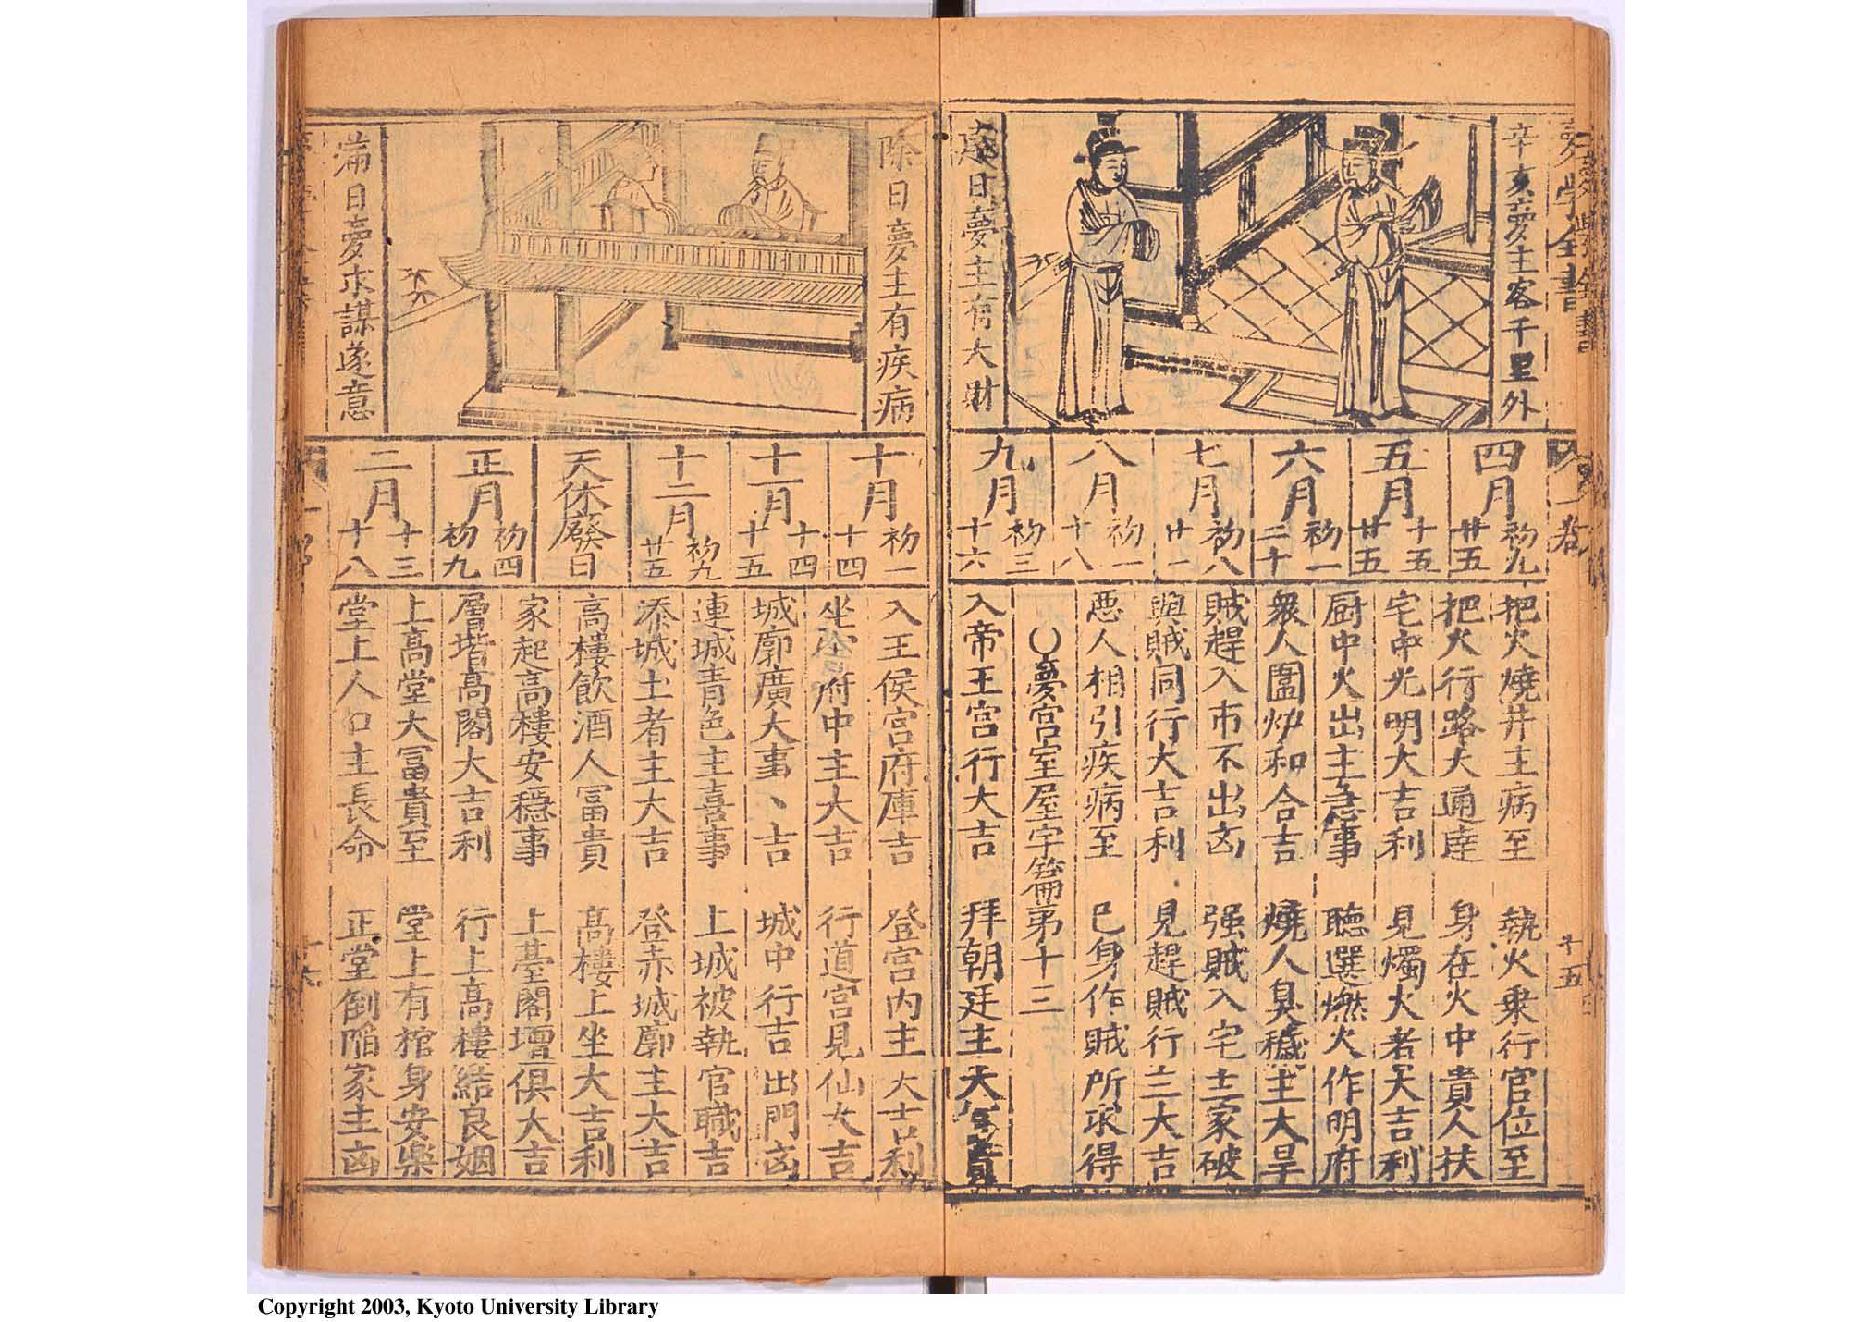 夢學全書
辛亥夢主客千里外
建日夢主有大財
四月 初九 廿五
五月 十五 廿五
六月 初一 二十
七月 初八 廿一
八月 初一 十八
九月 初三 十六
一卷
把火燒井主病至 執火乗行官位至
把火行路大通達 身在火中貴人扶
宅中光明大吉利 見燭火者大吉利
厨中火出主急事 聽選燃火作明府
衆人圍炉和合吉 燒人臭穢主大旱
賊趕入市不出凶 强賊入宅主家破
與賊同行大吉利 見趕賊行主大吉
惡人相引疾病至 已身作賊所求得
夢宮室屋宇篇第十三
入帝王宮行大吉 拜朝廷主大富貴
十五
除日夢主有疾病
滿日夢求謀遂意
十月 初一 十四
十一月 十四 十五
十二月 初九 廿五
天休廢日
正月 初四 初九
二月 十三 十八
入王侯宮府庫吉 登宮内主大吉利
坐陰府中主大吉 行道宮見仙大吉
城廓廣大事、吉 城中行吉出門凶
連城青色主喜事 上城被執官職吉
添城土者主大吉 登赤城廓主大吉
高樓飲酒人冨貴 髙樓上坐大吉利
家起高樓安穩事 上臺閣壇俱大吉
層堦髙閣大吉利 行上高樓結良姻
上高堂大冨貴至 堂上有棺身安樂
堂上人口主長命 正堂倒陷家主凶
Copyright 2003, Kyoto University Library